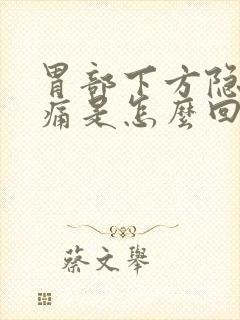 胃部下方隐
痛是怎麼回
蔡文舉